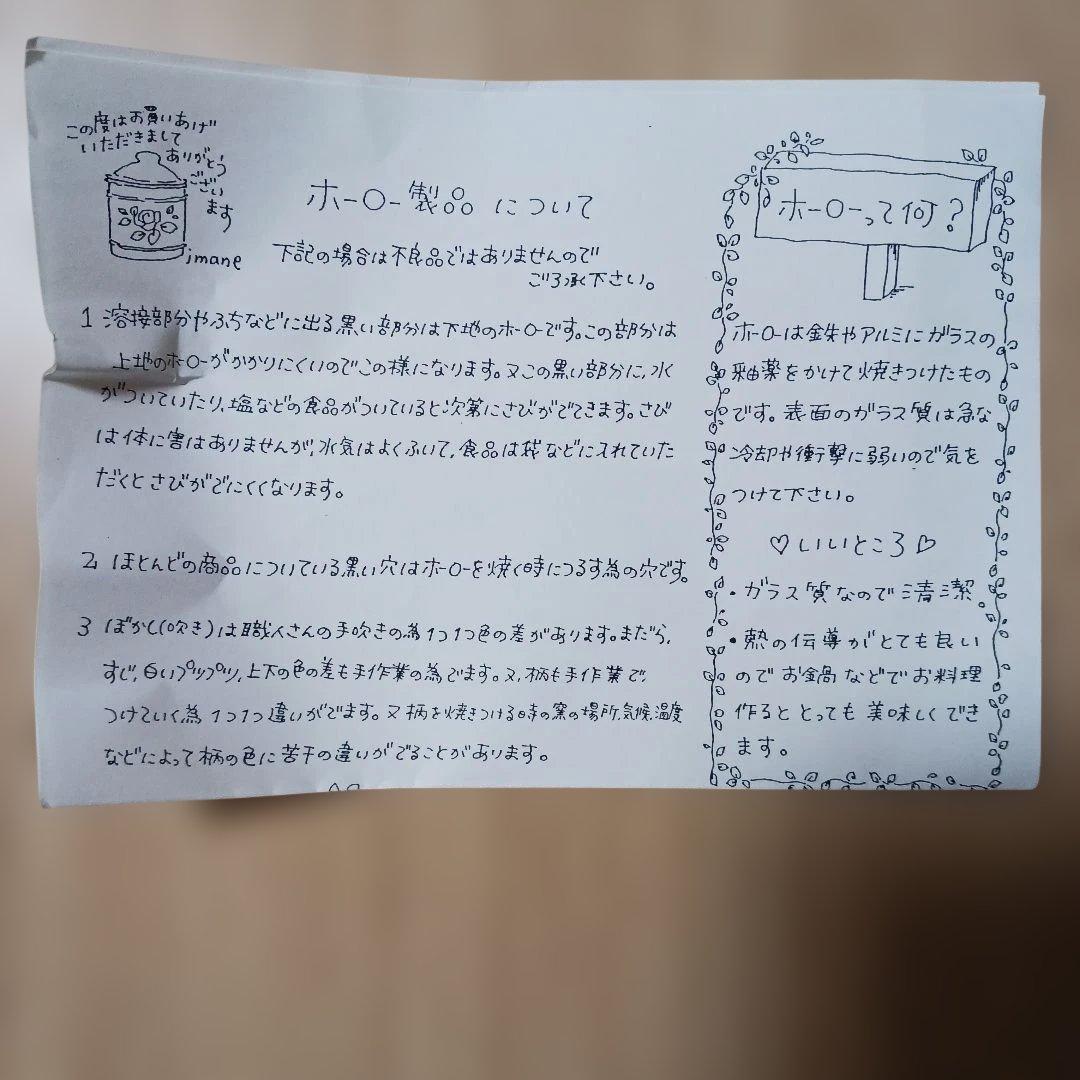 この度はお買いあげ
いただきまして
ありがとう
ござい
ます
imane
ホーロー製品について
下記の場合は不良品ではありませんので
ご了承下さい。
1 溶接部分やふちなどに出る黒い部分は下地のホーローです。この部分は
上地のホーローがかかりにくいのでこの様になります。又この黒い部分に,水
がついていたり,塩などの食品がついていると次第にさびがでてきます。さび
は体に害はありませんが,水気はよくふいて,食品は袋などに入れていた
だくとさびがでにくくなります。
2 ほとんどの商品についている黒い穴はホーローを焼く時につるす為の穴です。
3 ぼかし(吹き)は職人さんの手吹きの為1つ1つ色の差があります。まだら,
すじ,白いプップツ,上下の色の差も手作業の為でます。又,柄も手作業で,
つけていく為1つ1つ違いがでます。又柄を焼きつける時の窯の場所,気候,温度
などによって柄の色に若干の違いがでることがあります。
ホーローって何?
ホーローは金鉄やアルミにガラスの
釉薬をかけて焼きつけたもの
です。表面のガラス質は急な
冷却や衝撃に弱いので気を
つけて下さい。
♡いいところ♡
・ガラス質なので清潔
・熱の伝導がとても良い
のでお鍋などでお料理
作るととっても美味しくでき
ます。